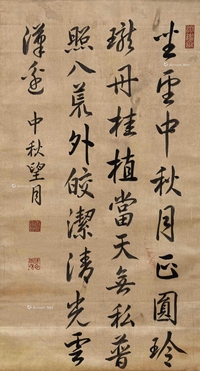 坐望中秋月正圓玲
瓏丹桂植當天無私普
照八荒外皎潔清光雲
漢邊 中秋望月